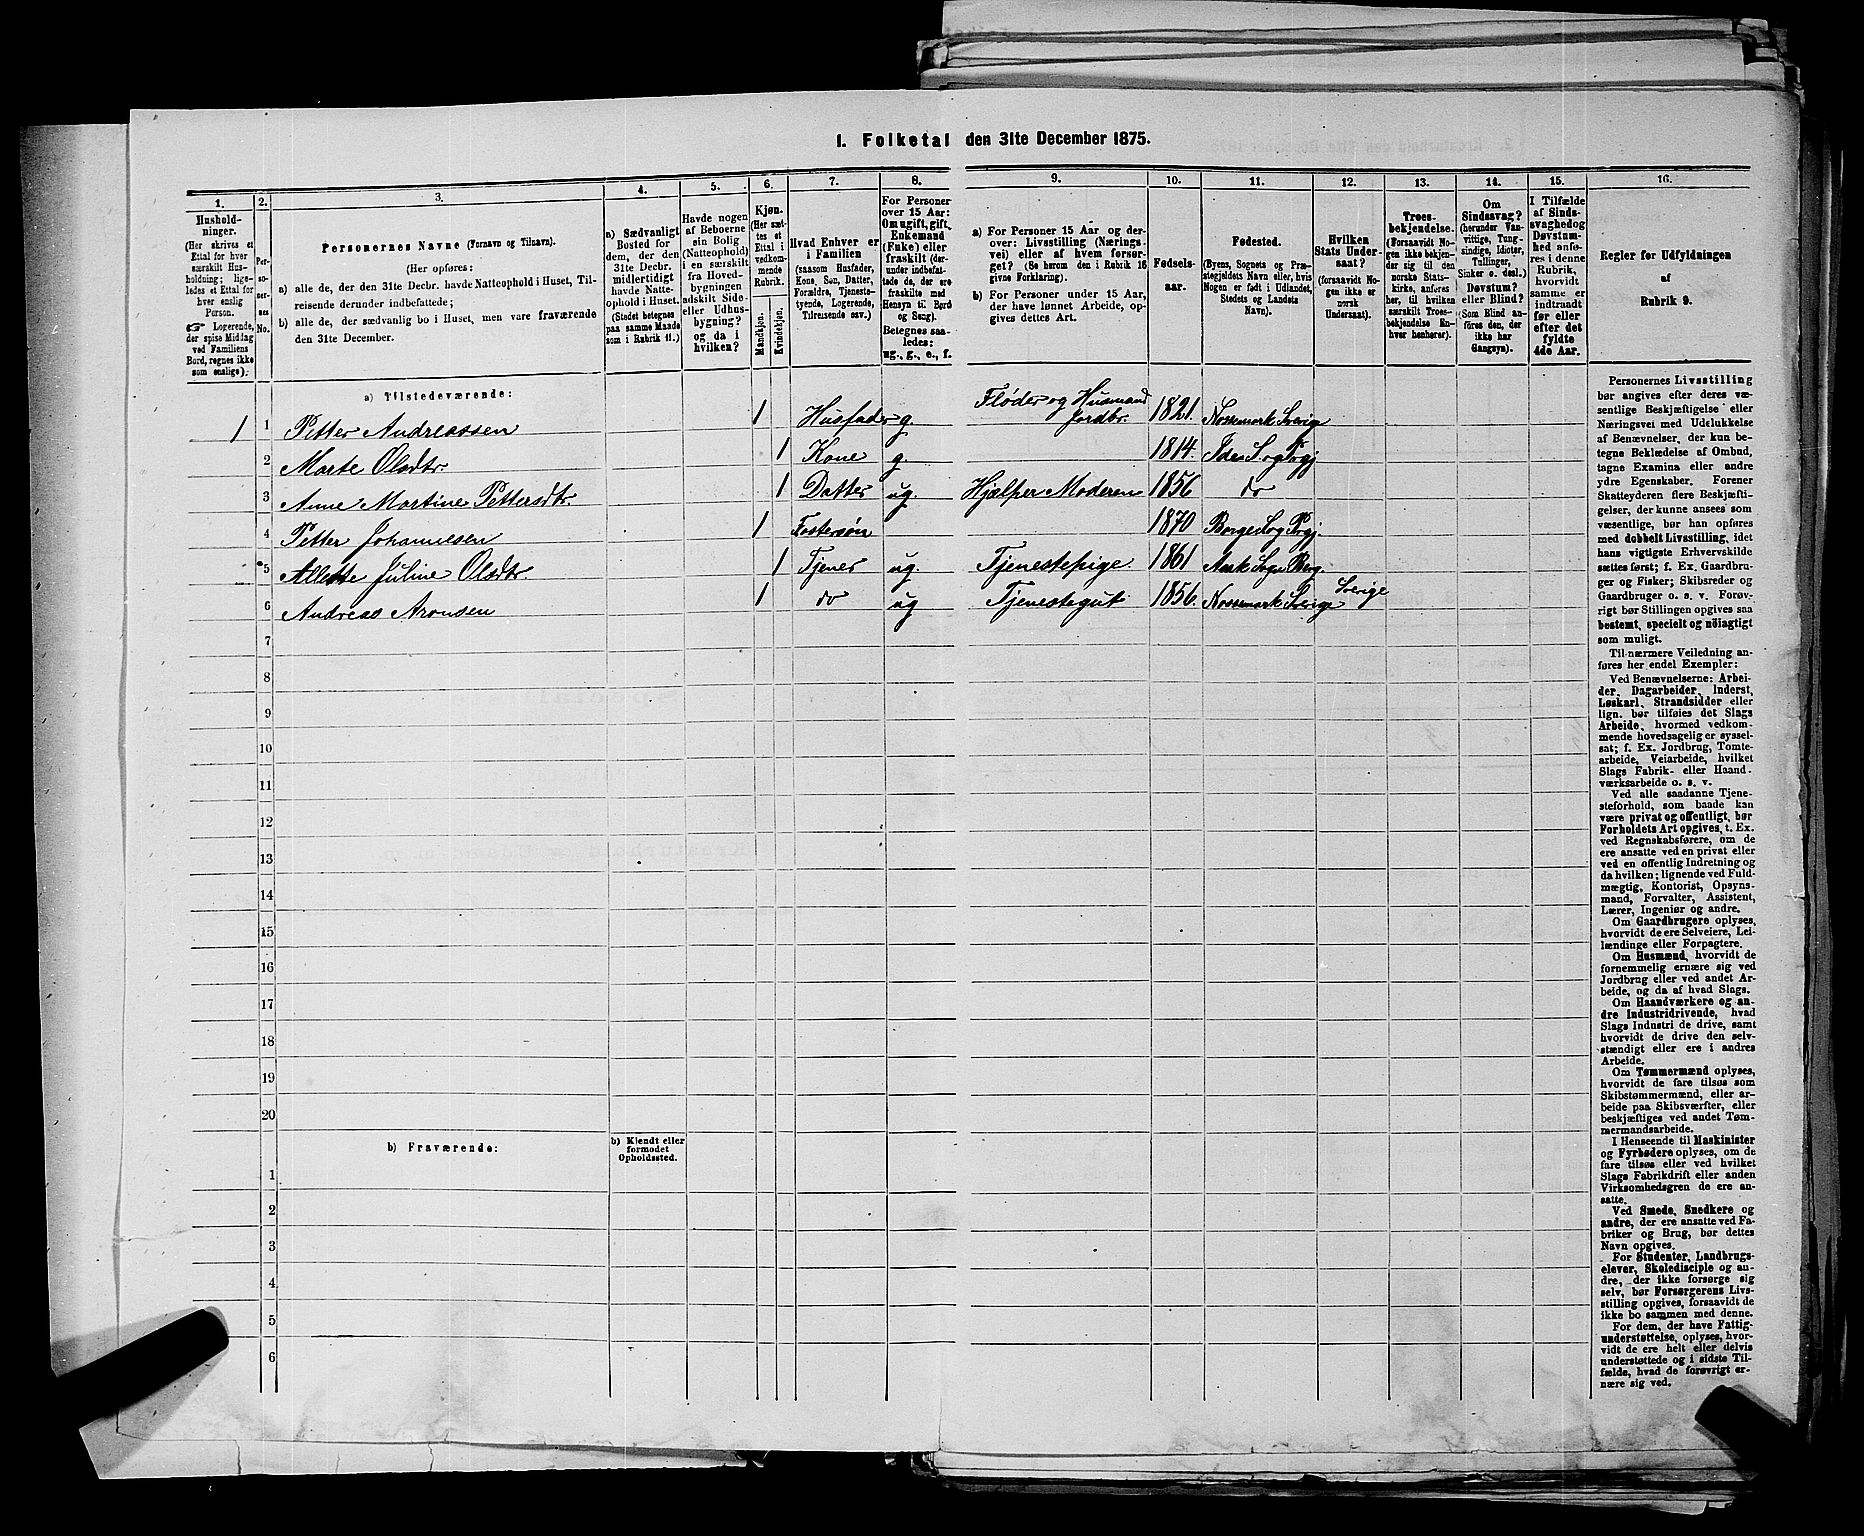 1. Folketal den 31te December 1875.
1. 2. 3. 4. 5. 6. 7. 8. 9. 10. 11. 12. 13. 14. 15. 16.
Hushold-
ninger.
(Her skrives et
Ettal for hver
særskilt Hus-
holdning; lige-
ledes et Ettal for
hver enslig
Person.
☞ Logerende,
der spise Middag
ved Familiens
Bord, regnes ikke
som enslige).
Per-
so-
ner-
nes
No.
Personernes Navne (Fornavn og Tilnavn).
(Her opføres:
a) alle de, der den 31te Decbr. havde Natteophold i Huset, Til-
reisende derunder indbefattede;
b) alle de, der sædvanlig bo i Huset, men vare fraværende
den 31te December.
a) Sædvanligt
Bosted for
dem, der den
31te Decbr.
midlertidigt
havde Natte-
ophold i Huset.
(Stedet betegnes
paa samme Maade
som i Rubrik 11.)
Havde nogen
af Beboerne
sin Bolig
(Natteophold)
i en særskilt
fra Hoved-
bygningen
adskilt Side-
eller Udhus-
bygning?
og da i
hvilken?
Kjøn.
(Her sæt-
tes et
Ettal i
vedkom-
mende
Rubrik.
Mandkjøn.
Kvindekjøn.
Hvad Enhver er
i Familien
(saasom Husfader,
Kone, Søn, Datter,
Forældre, Tjeneste-
tyende, Logerende,
Tilreisende osv.)
For Personer
over 15 Aar:
Om ugift, gift,
Enkemand
(Enke) eller
fraskilt (der-
under indbefat-
tede de, der ere
fraskilte med
Hensyn til Bord
og Seng).
Betegnes saa-
ledes:
ug., g., e., f.
a) For Personer 15 Aar og der-
over: Livsstilling (Nærings-
vei) eller af hvem forsør-
get? (Se herom den i Rubrik 16
givne Forklaring).
b) For Personer under 15 Aar,
der have lønnet Arbeide, op-
gives dettes Art.
Fødsels-
aar.
Fødested.
(Byens, Sognets og Præ-
stegjeldets Navn eller, hvis
Nogen er født i Udlandet,
Stedets og Landets
Navn).
Hvilken
Stats Under-
saat?
(forsaavidt No-
gen ikke er
norsk
Undersaat).
Troes-
bekjendelse.
(Forsaavidt No-
gen ikke bekjen-
der sig til den
norske Stats-
kirke, anføres
her, til hvilken
særskilt Troes-
bekjendelse En-
hver henhører).
Om
Sindssvag?
(herunder Van-
vittige, Tung-
sindige, Idioter,
Tullinger,
Sinker o. desl.)
Døvstum?
eller Blind?
(Som Blind an-
føres den, der
ikke har
Gangsyn).
I Tilfælde
af Sinds-
svaghed og
Døvstum-
hed anfø-
res i denne
Rubrik,
hvorvidt
samme er
indtraadt
før eller
efter det
fyldte
4de Aar.
Regler for Udfyldningen
af
Rubrik 9.
a) Tilstedeværende:
1 1 Petter Andreassen 1 Husfader g. Fløder og Husmand Jordbr. 1821. Nossemark Sverige
2 Marte Olsdtr 1 Kone g. 1814. Ide S. og Prgj
3 Anne Martine Pettersdtr. 1 Datter ug. Hjælper Moderen 1856 do
4 Petter Johannesen 1 Fostersøn 1870 Borge Sog Prgj
5 Allette Juline Olsdtr. 1 Tjener ug. Tjenestepige 1861 Aark Sogn Berg.
6 Andreas Aronsen 1 do ug Tjenestegut 1856. Nossemark Sverige Sverige
7
8
9
10
11
12
13
14
15
16
17
18
19
20
b) Fraværende:
b) Kjendt eller
formodet
Opholdssted.
1
2
3
4
5
6
Personernes Livsstilling
bør angives efter deres væ-
sentlige Beskjæftigelse eller
Næringsvei med Udelukkelse
af Benævnelser, der kun be-
tegne Beklædelse af Ombud,
tagne Examina eller andre
ydre Egenskaber. Forener
Skatteyderen flere Beskjæfti-
gelser, der kunne ansees som
væsentlige, bør han opføres
med dobbelt Livsstilling, idet
hans vigtigste Erhvervskilde
sættes først; f. Ex. Gaardbru-
ger og Fisker; Skibsreder og
Gaardbruger o. s. v. Forøv-
rigt bør Stillingen opgives saa
bestemt, specielt og nöiagtigt
som muligt.
Til nærmere Veiledning an-
føres her endel Exempler:
Ved Benævnelserne: Arbei-
der, Dagarbeider, Inderst,
Løskarl, Strandsidder eller
lign. bør tilføies det Slags
Arbeide, hvormed vedkom-
mende hovedsagelig er syssel-
sat; f. Ex. Jordbrug, Tomte-
arbeide, Veiarbeide, hvilket
Slags Fabrik- eller Haand-
værksarbeide o. s. v.
Ved alle saadanne Tjene-
steforhold, som baade kan
være privat og offentligt, bør
Forholdets Art opgives, t. Ex.
ved Regnskabsførere, om de
ere ansatte ved en privat eller
ved en offentlig Indretning og
da hvilken; lignende ved Fuld-
mægtig, Kontorist, Opsyns-
mand, Forvalter, Assistent,
Lærer, Ingeniør og andre.
Om Gaardbrugere oplyses,
hvorvidt de ere Selveiere, Lei-
lændinge eller Forpagtere.
Om Husmænd, hvorvidt de
fornemmelig ernære sig ved
Jordbrug eller ved andet Ar-
beide, og da af hvad Slags.
Om Haandværkere og an-
dre Industridrivende, hvad
Slags Industri de drive, samt
hvorvidt de drive den selv-
stændigt eller ere i andres
Arbeide.
Om Tømmermænd oplyses,
hvorvidt de fare tilsøs som
Skibstømmermænd, eller ar-
beide paa Skibsværfter, eller
beskjæftiges ved andet Tøm-
mermandsarbeide.
I Henseende til Maskinister
og Fyrbødere oplyses, om de
fare tilsøs eller ved hvilket
Slags Fabrikdrift eller anden
Virksomhedsgren de ere an-
satte.
Ved Smede, Snedkere og
andre, der ere ansatte ved Fa-
briker og Brug, bør dettes
Navn opgives.
For Studenter, Landbrugs-
elever, Skoledisciple og an-
dre, der ikke forsørge sig
selv, bør Forsørgerens Livs-
stilling opgives, forsaavidt de
ikke bo sammen med denne.
For dem, der have Fattig-
understøttelse, oplyses, hvor-
vidt de ere helt eller delvis
understøttede og i sidste Til-
fælde, hvad de forøvrigt er-
nære sig ved.